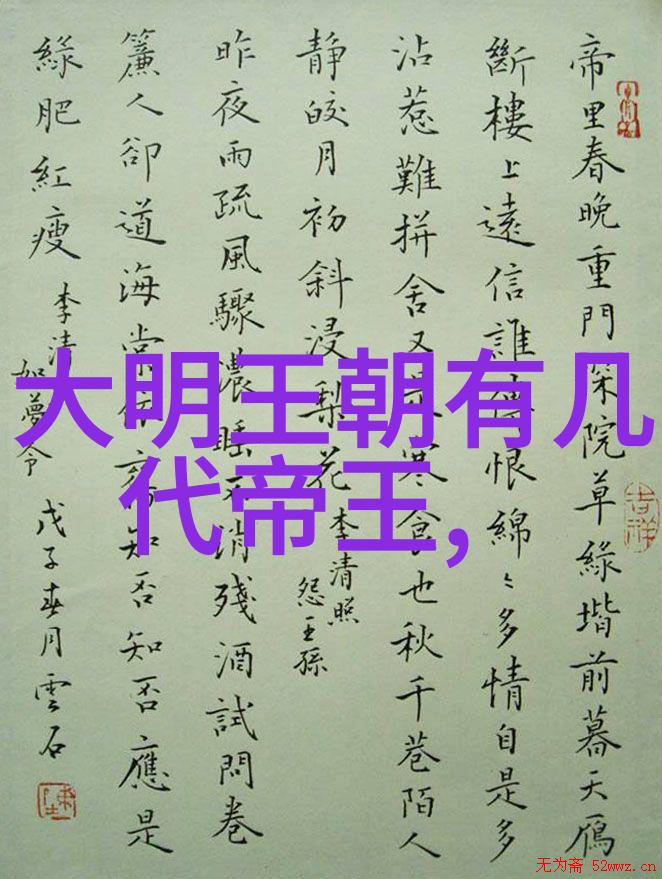 帝里春晚重門深院草綠堦前暮天鴈
斷樓上遠信誰傳恨綿〻多情自是多
沾惹難拼舍又是寒食也秋千巷陌人
靜皎月初斜浸梨花 李清照
怨王孫
昨夜雨疏風驟濃睡不消殘酒試問卷
簾人卻道海棠依舊知否知否應是
綠肥紅瘦 李清
如夢令 戊子春月雲石
大明王朝有几
代帝王,
吉祥
无为斋 52wwz.cn